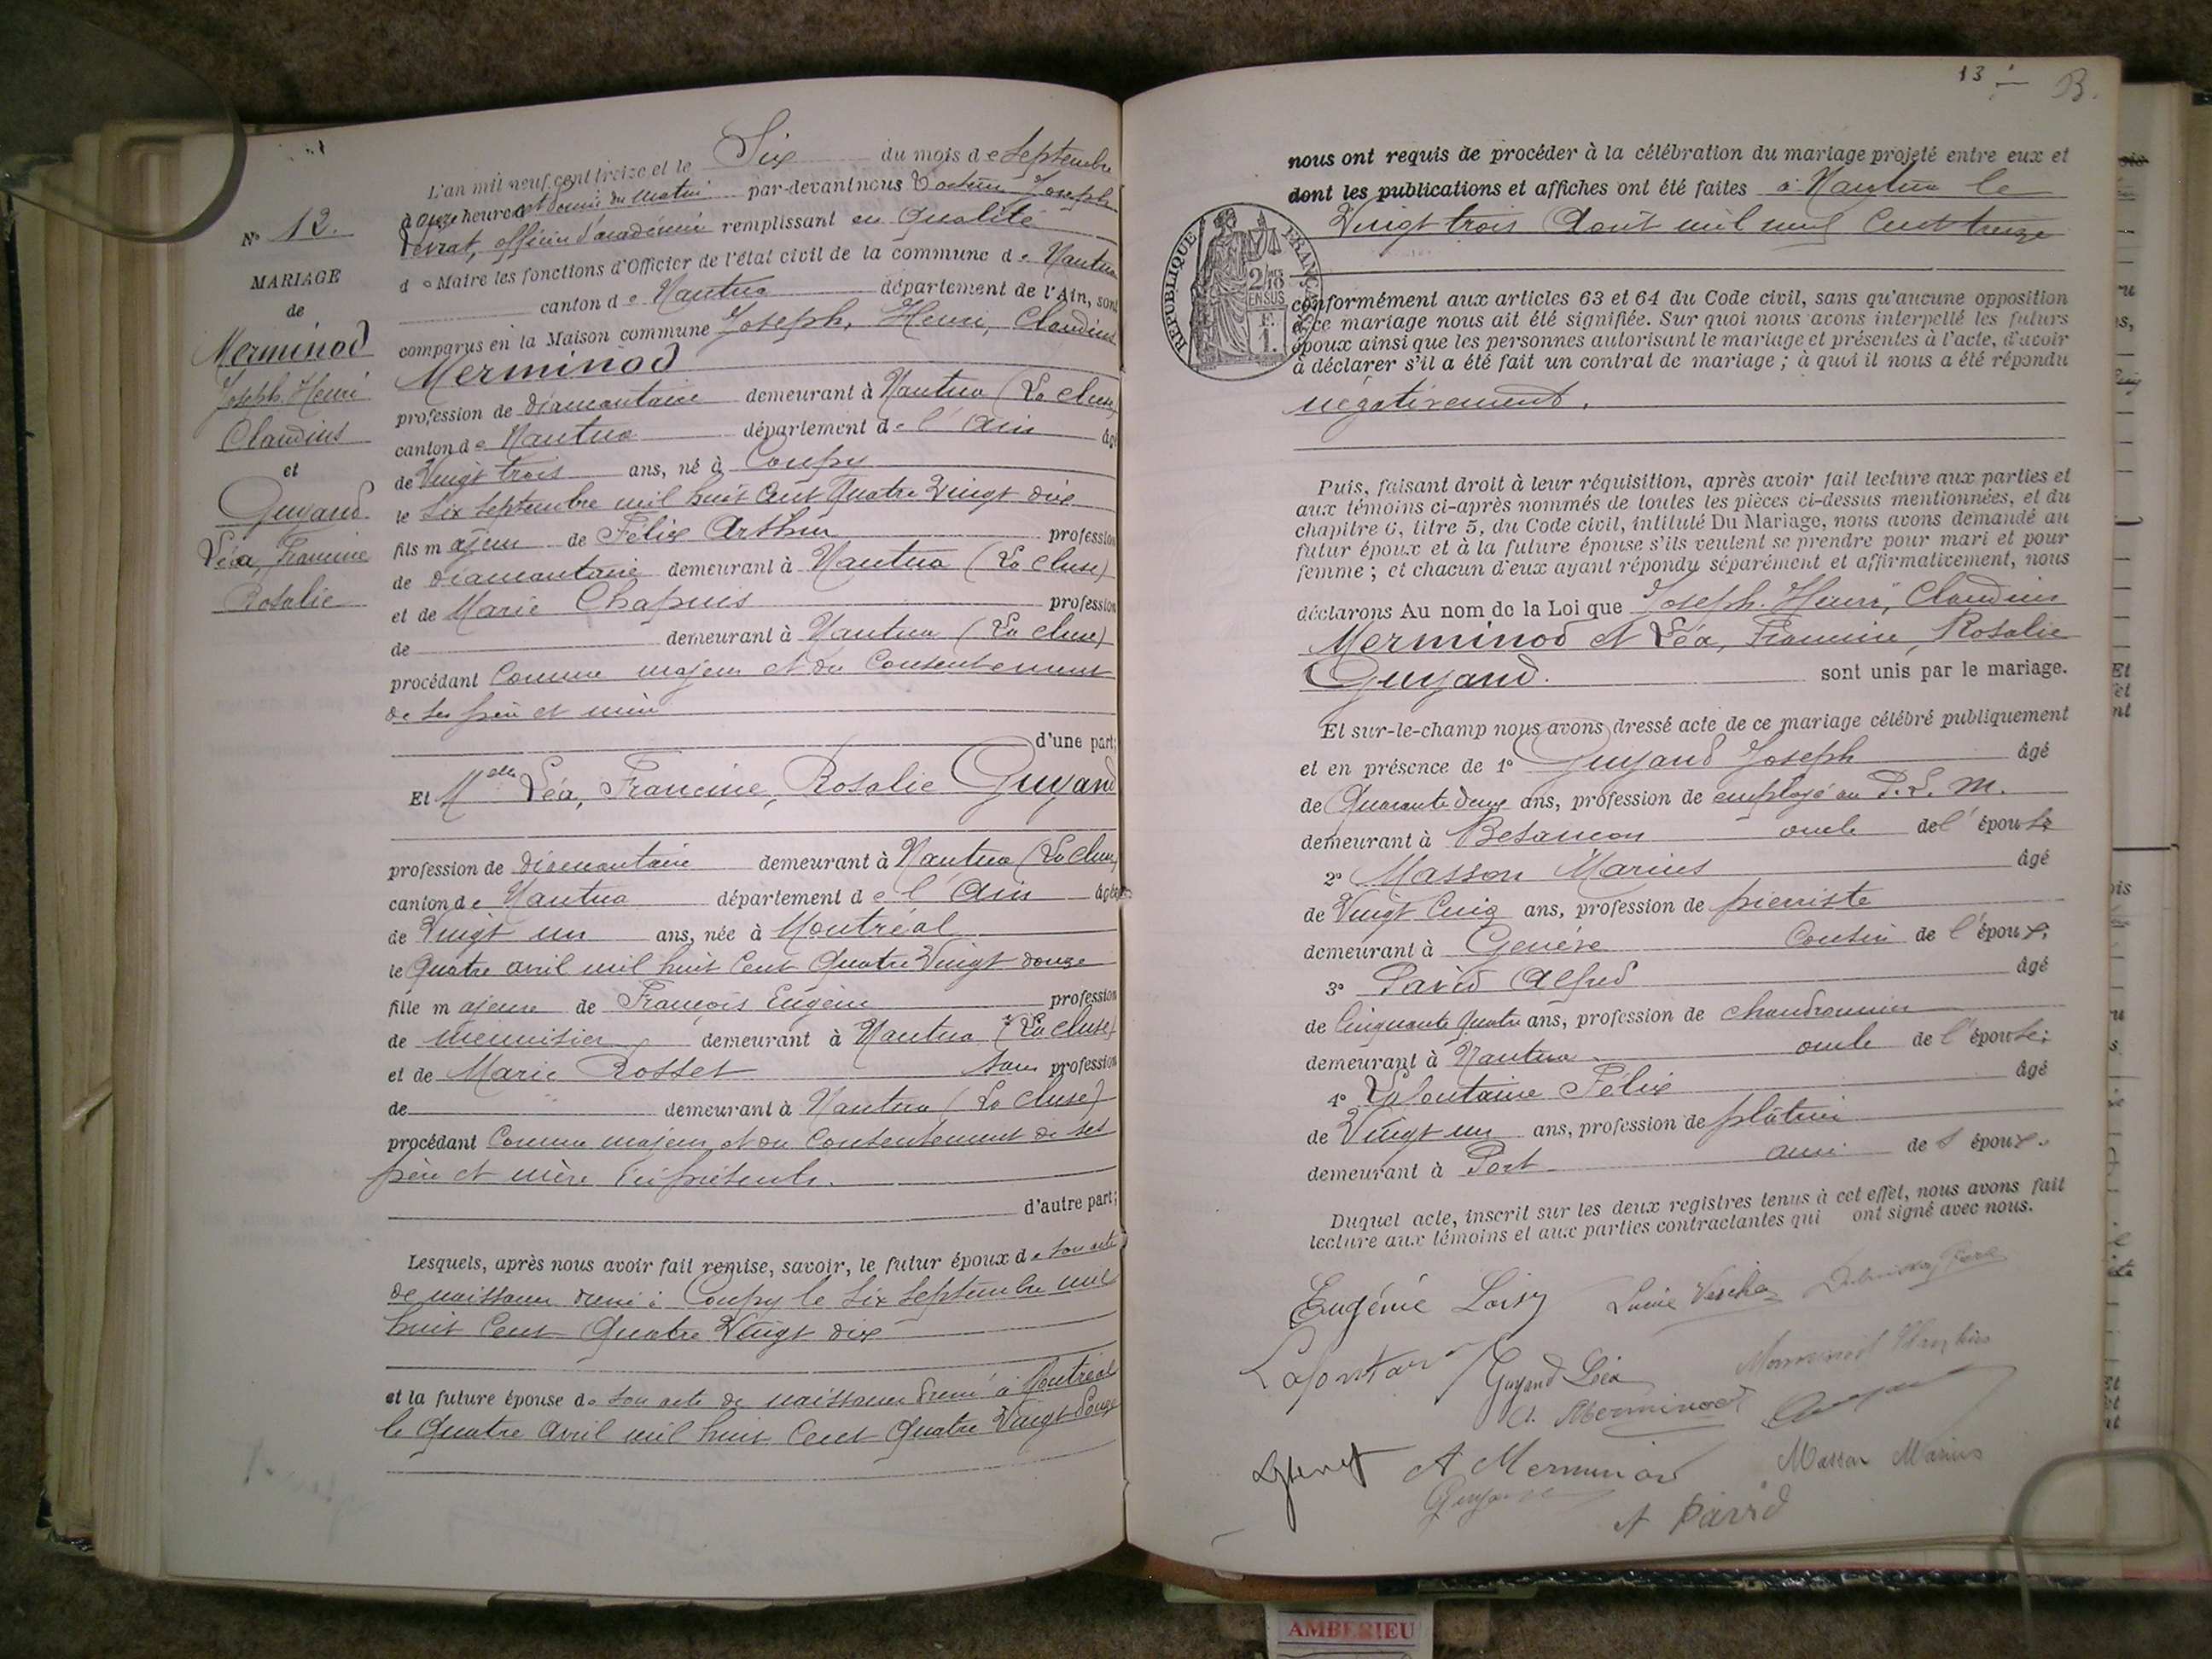 L'an mil neuf cent treize et le Six du mois de Septembre
à onze heures et demie du matin par-devant nous Joseph
officier d'académie remplissant en qualité
de Maire les fonctions d'Officier de l'état civil de la commune de Nantua
canton de Nantua département de l'Ain, sont
comparus en la Maison commune Joseph, Henri, Claudius
Merminod
profession de diamantaire demeurant à Nantua (La Cluse)
canton de Nantua département de l'Ain âgé
de Vingt trois ans, né à Coupy
le Six Septembre mil huit cent Quatre Vingt dix
fils majeur de Félix Arthur profession
de diamantaire demeurant à Nantua (La Cluse)
et de Marie Chapuis profession
de demeurant à Nantua (La Cluse)
procédant Comme majeur et du Consentement
de ses père et mère
d'une part;
Et Melle Léa, Francine, Rosalie Guyand
profession de diamantaire demeurant à Nantua (La Cluse)
canton de Nantua département de l'Ain âgée
de Vingt un ans, née à Montréal
le Quatre avril mil huit Cent Quatre Vingt douze
fille majeure de François Eugène profession
de menuisier demeurant à Nantua (La Cluse)
et de Marie Rosset sans profession
de demeurant à Nantua (La Cluse)
procédant Comme majeur et du Consentement de ses
père et mère ici présents.
d'autre part;
Lesquels, après nous avoir fait remise, savoir, le futur époux de son acte
de naissance dressé à Coupy le Six Septembre mil
huit Cent Quatre Vingt dix
et la future épouse de son acte de naissance dressé à Montréal
le Quatre Avril mil huit Cent Quatre Vingt Douze
N° 12.
MARIAGE
de
Merminod
Joseph Henri
Claudius
et
Guyand
Léa, Francine
Rosalie
13
B.
nous ont requis de procéder à la célébration du mariage projeté entre eux et
dont les publications et affiches ont été faites à Nantua le
Vingt trois Août mil neuf Cent treize
REPUBLIQUE FRANÇAISE
2/10
EN SUS
F.
1.
conformément aux articles 63 et 64 du Code civil, sans qu'aucune opposition
à ce mariage nous ait été signifiée. Sur quoi nous avons interpellé les futurs
époux ainsi que les personnes autorisant le mariage et présentes à l'acte, d'avoir
à déclarer s'il a été fait un contrat de mariage; à quoi il nous a été répondu
négativement.
Puis, faisant droit à leur réquisition, après avoir fait lecture aux parties et
aux témoins ci-après nommés de toutes les pièces ci-dessus mentionnées, et du
chapitre 6, titre 5, du Code civil, intitulé Du Mariage, nous avons demandé au
futur époux et à la future épouse s'ils veulent se prendre pour mari et pour
femme; et chacun d'eux ayant répondu séparément et affirmativement, nous
déclarons Au nom de la Loi que Joseph. Henri, Claudius
Merminod et Léa, Francine, Rosalie
Guyand. sont unis par le mariage.
Et sur-le-champ nous avons dressé acte de ce mariage célébré publiquement
et en présence de 1° Guyand Joseph âgé
de Quarante deux ans, profession de employé au P. L. M.
demeurant à Besancon oncle de l'épouse
2° Masson Marius âgé
de Vingt Cinq ans, profession de pierriste
demeurant à Genève Cousin de l'époux;
3° David Alfred âgé
de Cinquante Quatre ans, profession de chaudronnier
demeurant à Nantua oncle de l'épouse;
4° Lafontaine Félix âgé
de Vingt un ans, profession de plâtrier
demeurant à Port ami de l'époux.
Duquel acte, inscrit sur les deux registres tenus à cet effet, nous avons fait
lecture aux témoins et aux parties contractantes qui ont signé avec nous.
Eugénie Loisy Lucie
Guyand Léa
C. Merminod
A Merminod Masson Marius
A David
AMBERIEU